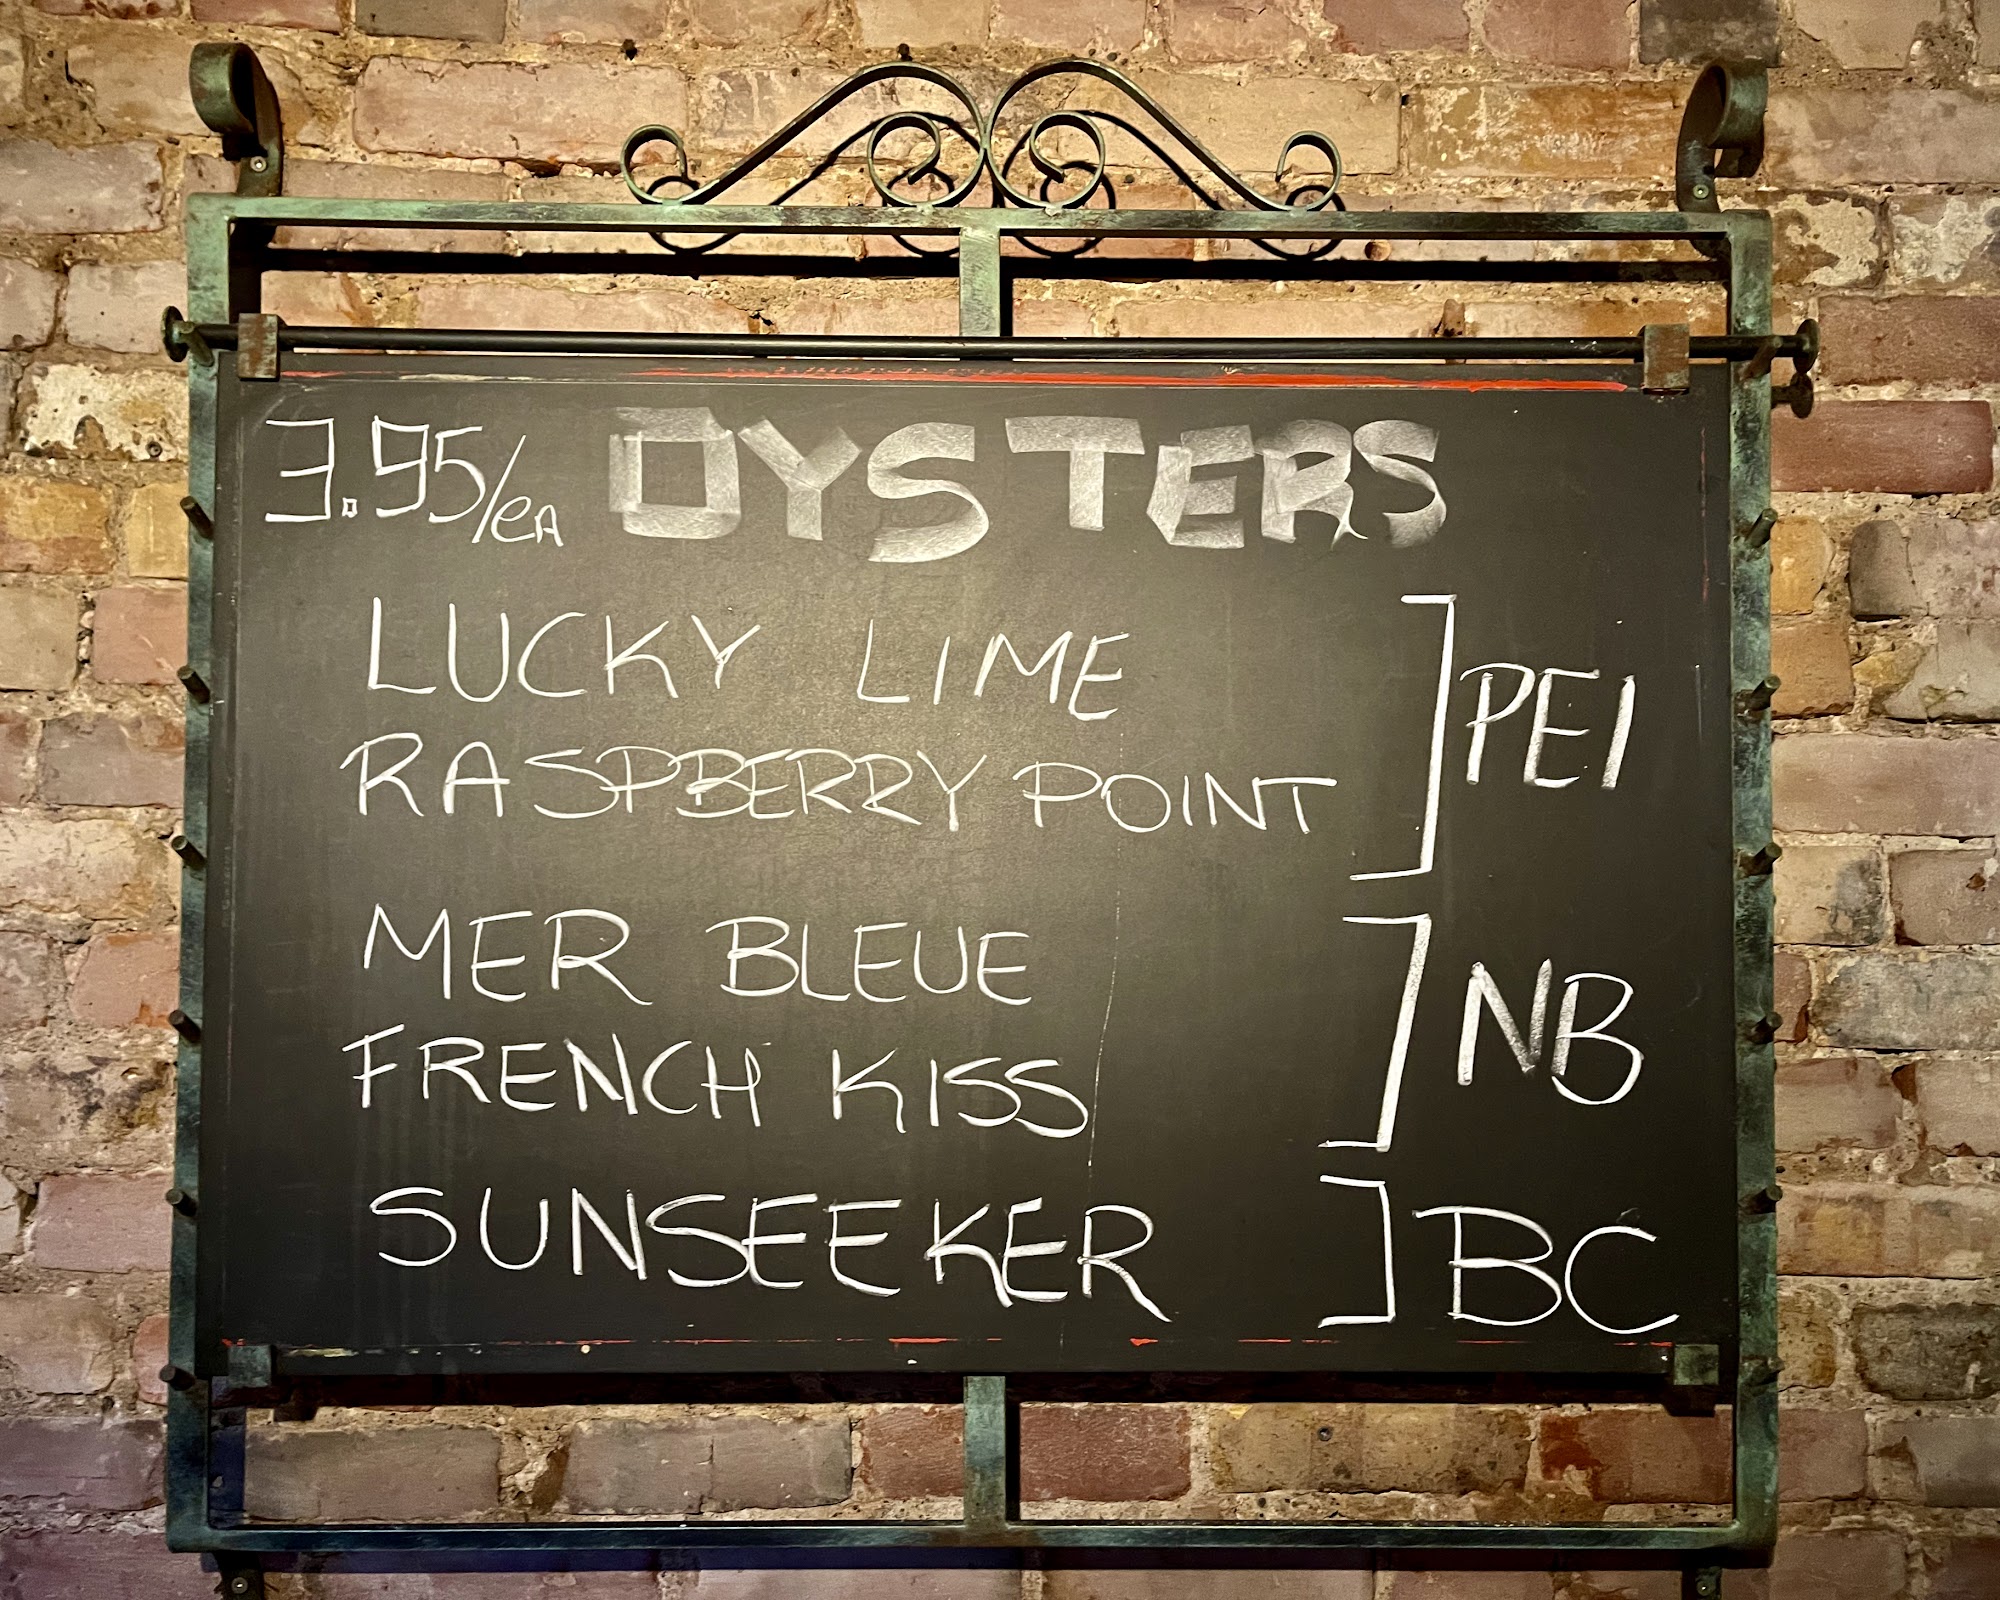 3.95/eA OYSTERS
LUCKY LIME
RASPBERRY POINT
PEI
MER BLEUE
FRENCH KISS
NB
SUNSEEKER
BC